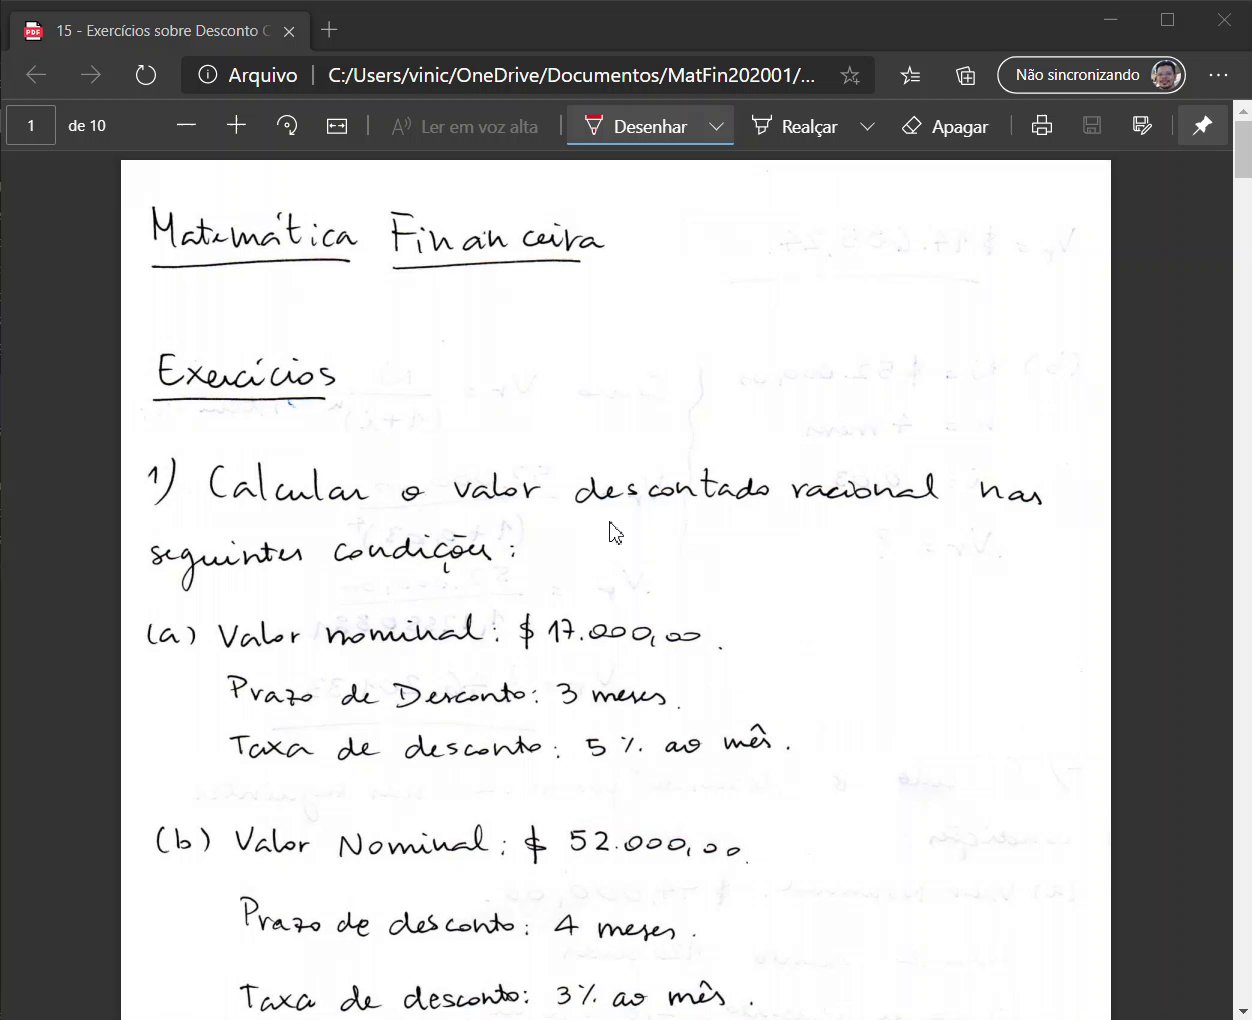 15 - Exercícios sobre Desconto C
Arquivo C:/Users/vinic/OneDrive/Documentos/MatFin202001/... Não sincronizando
1 de 10 Ler em voz alta Desenhar Realçar Apagar
Matemática Financeira
Exercícios
1) Calcular o valor descontado racional nas
seguintes condições:
(a) Valor nominal: $ 17.000,00.
Prazo de Desconto: 3 meses.
Taxa de desconto: 5% ao mês.
(b) Valor Nominal: $ 52.000,00.
Prazo de desconto: 4 meses.
Taxa de desconto: 3% ao mês.